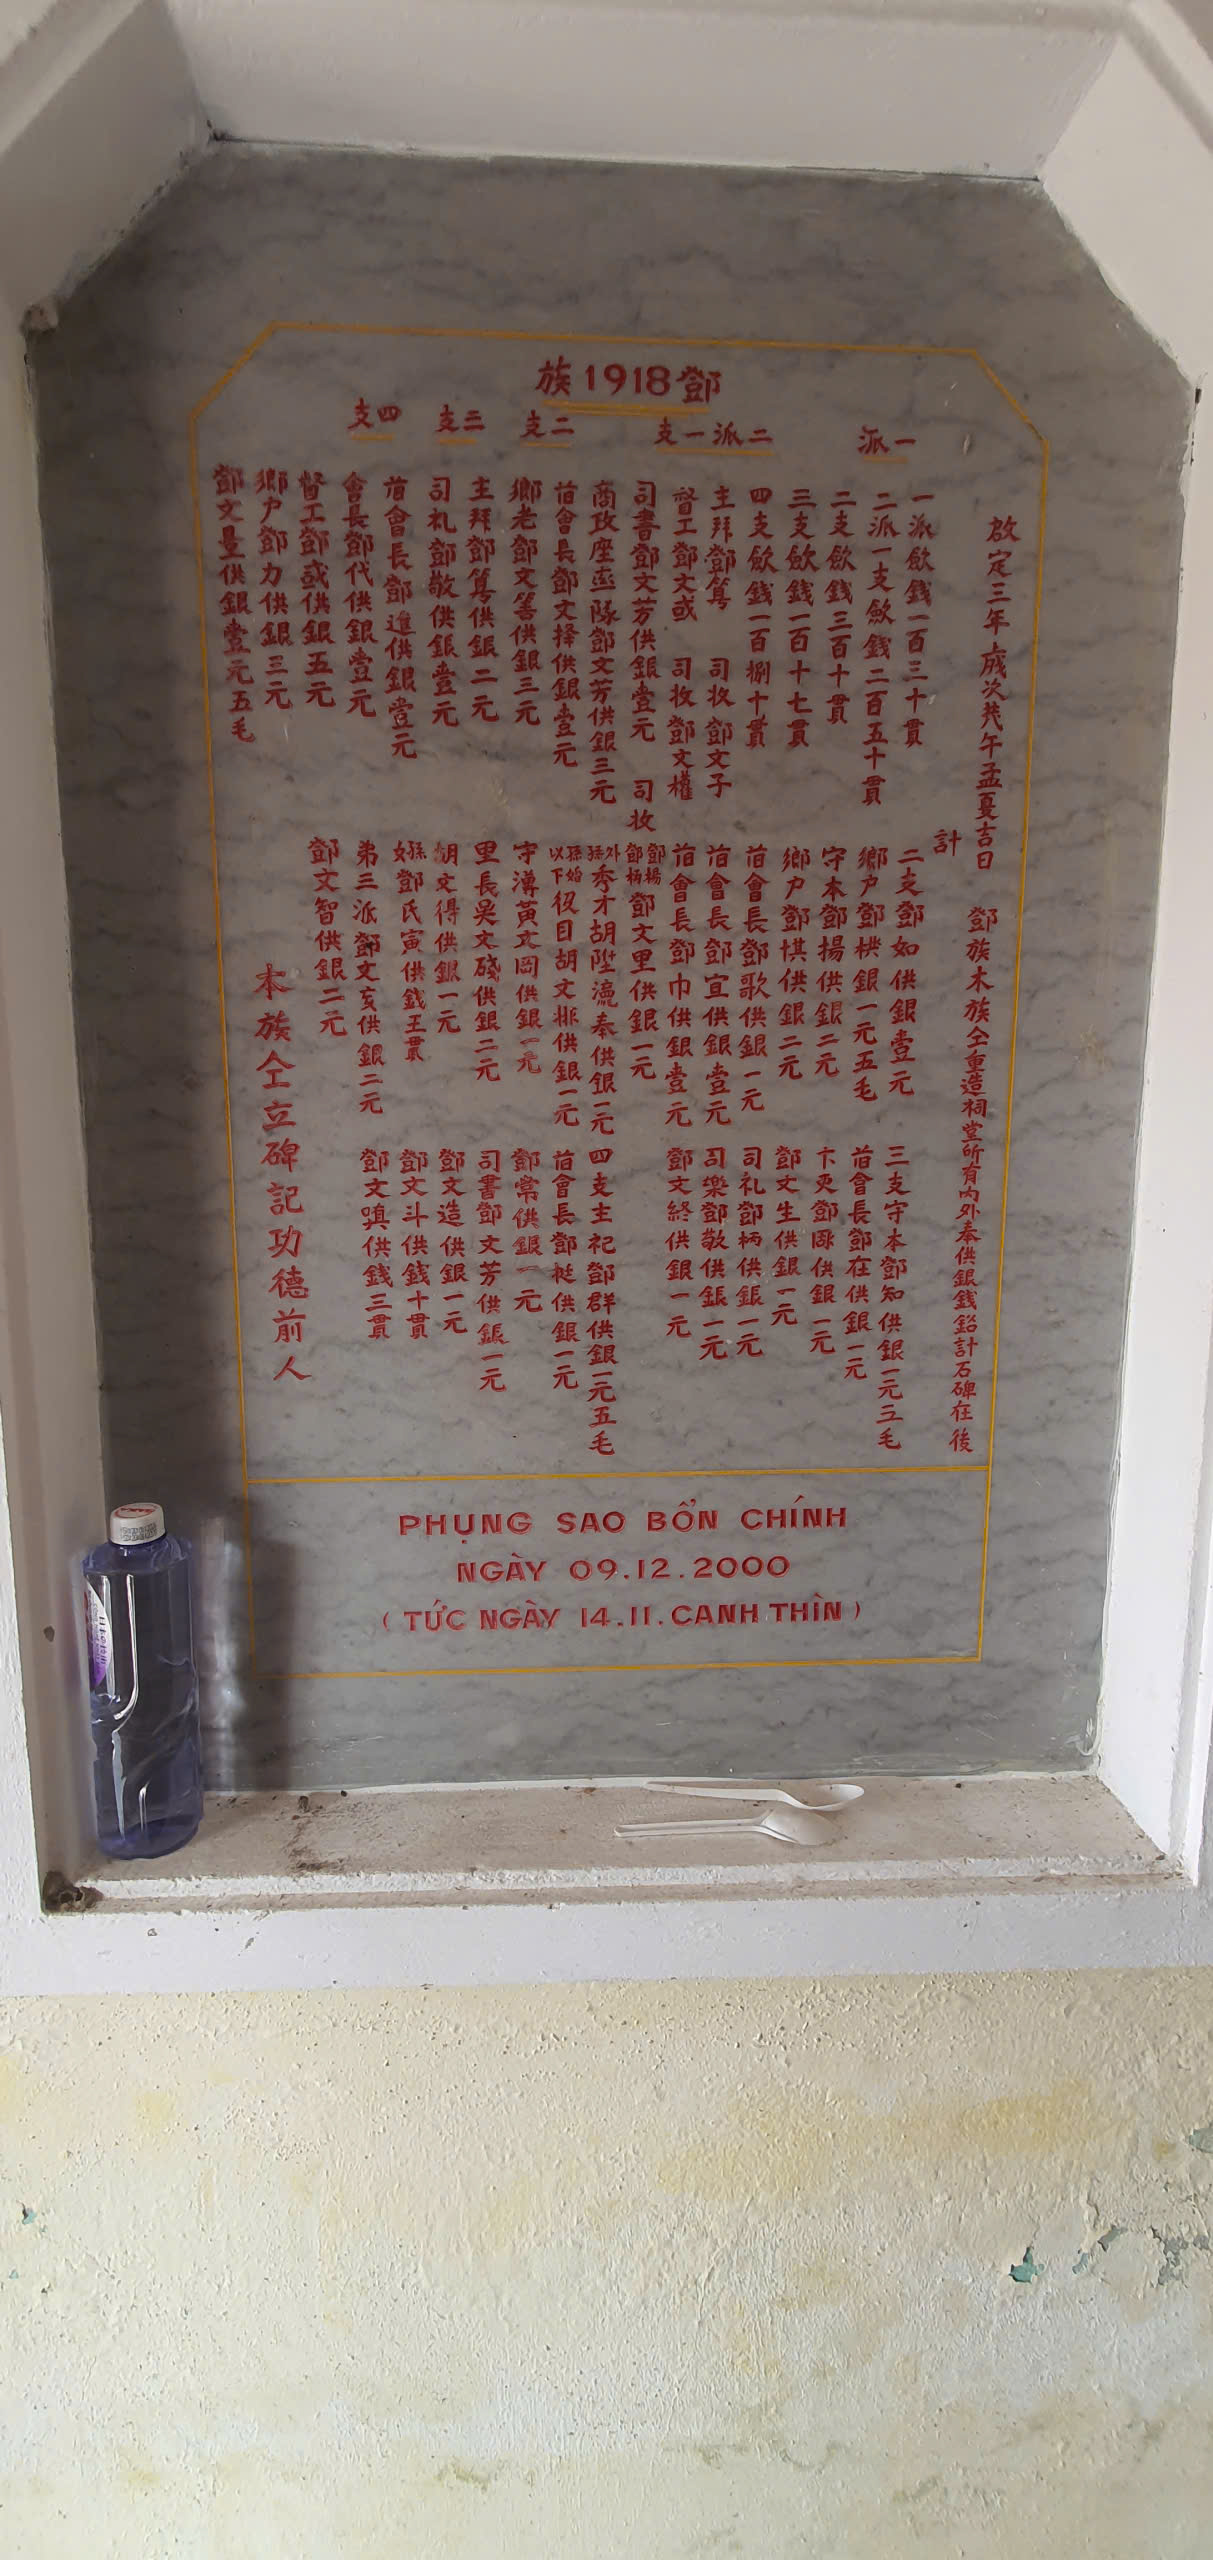 鄧1918族
一派
二派一支
二支
三支
四支
啟定三年歲次戊午孟夏吉日
鄧族本族仝重造祠堂所有內外奉供銀錢銘計石碑在後
計
一派歛錢一百三十貫
二派一支歛錢二百五十貫
二支歛錢三百十貫
三支歛錢一百十七貫
四支歛錢一百捌十貫
主拜鄧筭 司收鄧文子
督工鄧文或 司收鄧文權
司書鄧文芳供銀壹元 司收鄧楊鄧柄
商政座率隊鄧文芳供銀三元
首會長鄧文擇供銀壹元
鄉老鄧文筈供銀三元
主拜鄧筭供銀二元
司礼鄧敬供銀壹元
首會長鄧進供銀壹元
會長鄧代供銀壹元
督工鄧或供銀五元
鄉户鄧力供銀三元
鄧文量供銀壹元五毛
二支鄧如供銀壹元
鄉户鄧栱銀一元五毛
守本鄧揚供銀二元
鄉户鄧棋供銀二元
首會長鄧歌供銀一元
首會長鄧宜供銀壹元
首會長鄧巾供銀壹元
鄧文里供銀一元
外孫秀才胡陞瀛奉供銀一元
孫始以下役目胡文排供銀一元
守溥黃文岡供銀一元
里長吳文碊供銀二元
胡文得供銀一元
孫女鄧氏寅供錢五貫
弟三派鄧文亥供銀二元
鄧文智供銀二元
三支守本鄧知供銀一元二毛
首會長鄧在供銀一元
卞更鄧囦供銀一元
鄧文生供銀一元
司礼鄧柄供銀一元
司樂鄧敬供銀一元
鄧文終供銀一元
四支主祀鄧群供銀一元五毛
首會長鄧梃供銀一元
鄧常供銀一元
司書鄧文芳供銀一元
鄧文造供銀一元
鄧文斗供錢十貫
鄧文嗔供錢三貫
本族仝立碑記功德前人
PHỤNG SAO BỔN CHÍNH
NGÀY 09.12.2000
(TỨC NGÀY 14.11.CANH THÌN)